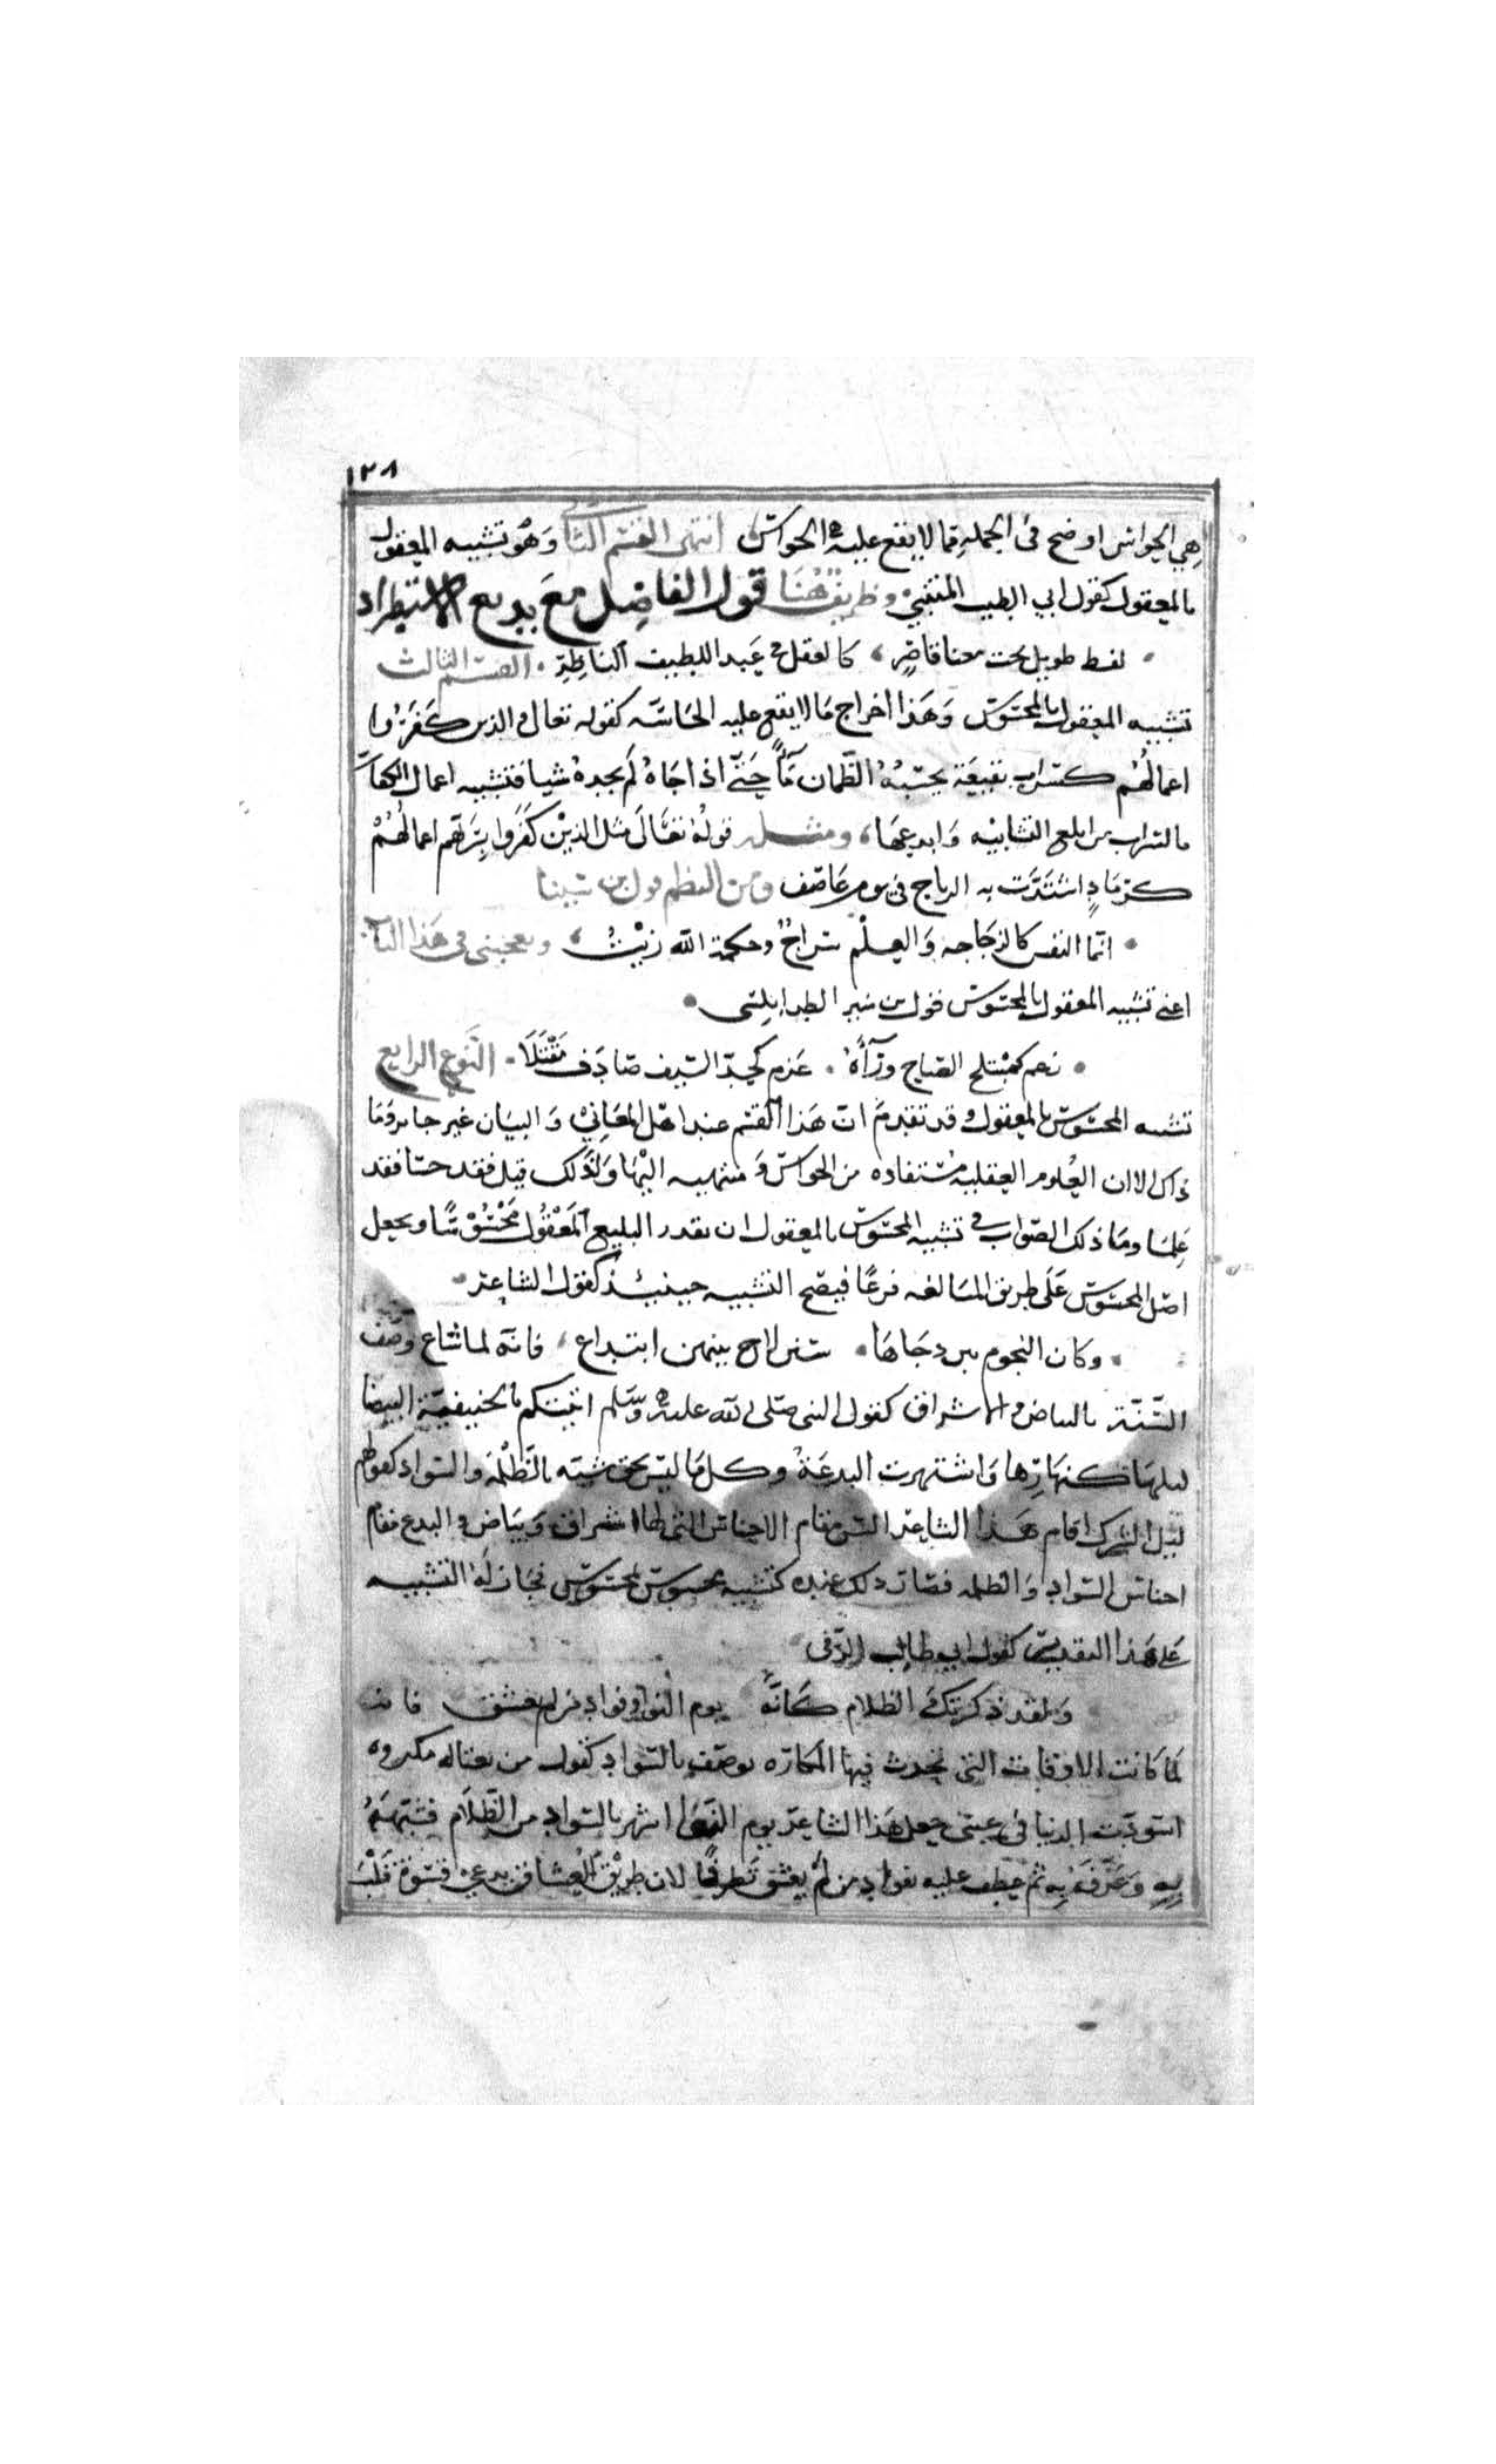 ١٢٨
هي الحواس اوضح في الجملة مما لا يقع عليه الحواس انتهى القسم الثاني وهو تشبيه المعقول
بالمعقول كقول ابي الطيب المتنبي وظريف هنا قول الفاضل مع بديع الاستطراد
لفظ طويل تحت معنا قاصر ، كالعقل في عبد اللطيف الناظر . القسم الثالث
تشبيه المعقول بالمحسوس وهذا اخراج ما لا يقع عليه الحاسه كقوله تعالى والذين كفروا
اعمالهم كسراب بقيعة يحسبه الظمان مآء حتى اذا جاه لم يجده شيا فتشبيه اعمال الكفار
بالسراب من ابلغ التشابيه وابدعها ، ومثله قوله تعالى مثل الذين كفروا بربهم اعمالهم
كرماد اشتدت به الرياح في يوم عاصف ومن النظم قول بن سينا
انما النفس كالزجاجه والعلم سراج وحكمة الله زيت ، ويعجبني في هذا الباب
اعني تشبيه المعقول بالمحسوس قول بن منير الطرابلسي
زعم كمنبلج الصباح ورآه . عزم كحد السيف صادف مقتلا . النوع الرابع
تشبيه المحسوس بالمعقول وقد تقدم ان هذا القسم عند اهل المعاني والبيان غير جايز وما
ذاك الا ان العلوم العقلية مستفاده من الحواس ومنتهيه اليها ولذلك قيل فقد حسا فقد
علما وما ذلك الصواب في تشبيه المحسوس بالمعقول ان يقدر البليغ المعقول محسوسا ويجعل
اصل المحسوس على طريق المبالغه فرعا فيصح التشبيه حينئذ كقول الشاعر
وكان النجوم بين دجاها . سنن لاح بينهن ابتداع ، فانه لما شاع وصف
السنة بالبياض والاشراق كقول النبي صلى الله عليه وسلم اتيتكم بالحنيفية البيضا
ليلها كنهارها واشتهرت البدعة وكل ما ليس بحق شبه بالظلمة والسواد كقولهم
ليل الشرك اقام هذا الشاعر السنن مقام الاجناس التي لها اشراق وبياض والبدع مقام
اجناس السواد والظلمه فصار ذلك عنده كتشبيه محسوس بمحسوس فجاز له التشبيه
على هذا التقدير كقول ابي طالب الرقي
ولقد ذكرتك في الظلام كانه يوم النوا وفواد من لم يعشق فانه
لما كانت الاوقات التي تحدث فيها المكاره توصف بالسواد كقول من يغتاله مكروه
اسودت الدنيا في عيني جعل هذا الشاعر يوم النوا اشهر بالسواد من الظلام فشبهه
به وعرفه به ثم عطف عليه بفواد من لم يعشق تظرفا لان طريق العشاق يدعي قسوة قلب